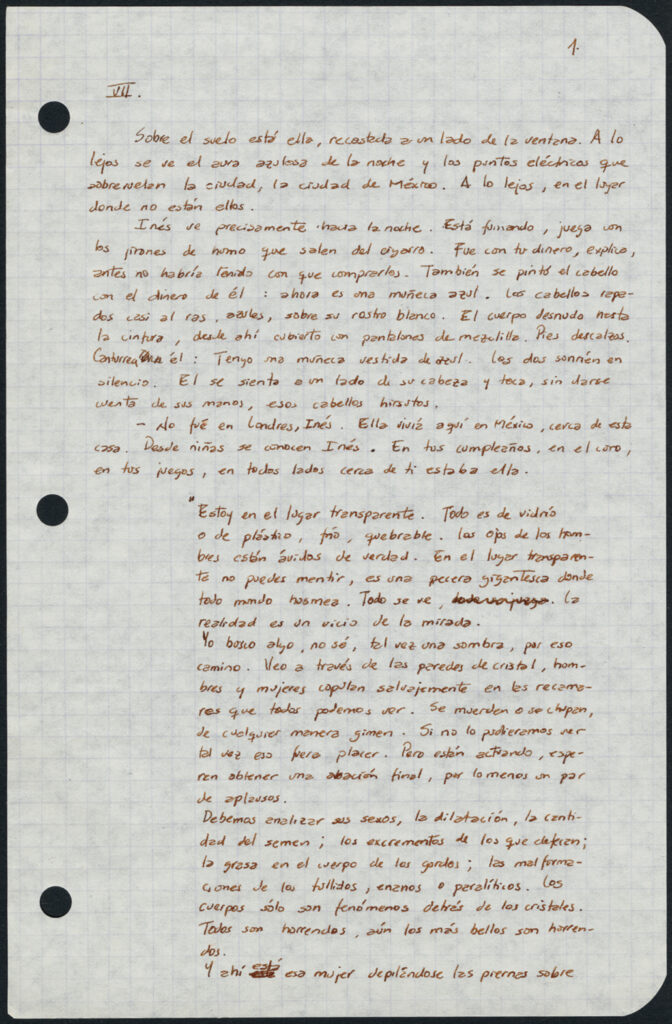 1.
VII.
Sobre el suelo está ella, recostada a un lado de la ventana. A lo
lejos se ve el aura azulosa de la noche y los puntos eléctricos que
sobrevuelan la ciudad, la ciudad de México. A lo lejos, en el lugar
donde no están ellos.
Inés ve precisamente hacia la noche. Está fumando, juega con
los jirones de humo que salen del cigarro. Fue con tu dinero, explica,
antes no habría tenido con que comprarlos. También se pintó el cabello
con el dinero de él: ahora es una muñeca azul. Los cabellos rapa-
dos casi al ras, azules, sobre su rostro blanco. El cuerpo desnudo hasta
la cintura, desde ahí cubierto con pantalones de mezclilla. Pies descalzos.
Canturrea él: Tengo una muñeca vestida de azul. Los dos sonríen en
silencio. El se sienta a un lado de su cabeza y toca, sin darse
cuenta de sus manos, esos cabellos hirsutos.
- No fué en Londres, Inés. Ella vivía aquí en México, cerca de esta
casa. Desde niñas se conocen Inés. En tus cumpleaños, en el coro,
en tus juegos, en todos lados cerca de ti estaba ella.
"Estoy en el lugar transparente. Todo es de vidrio
o de plástico, frío, quebrable. Los ojos de los hom-
bres están ávidos de verdad. En el lugar transparen-
te no puedes mentir, es una pecera gigantesca donde
todo mundo husmea. Todo se ve, . La
realidad es un vicio de la mirada.
Yo busco algo, no sé, tal vez una sombra, por eso
camino. Veo a través de las paredes de cristal, hom-
bres y mujeres copulan salvajemente en las recama-
ras que todos podemos ver. Se muerden o se chupan,
de cualquier manera gimen. Si no lo pudieramos ver
tal vez eso fuera placer. Pero están actuando, espe-
ran obtener una obación final, por lo menos un par
de aplausos.
Debemos analizar sus sexos, la dilatación, la canti-
dad del semen; los excrementos de los que defecan;
la grasa en el cuerpo de los gordos; las malforma-
ciones de los tullidos, enanos o paralíticos. Los
cuerpos sólo son fenómenos detrás de los cristales.
Todos son horrendos, aún los más bellos son horren-
dos.
Y ahí está esa mujer depilándose las piernas sobre